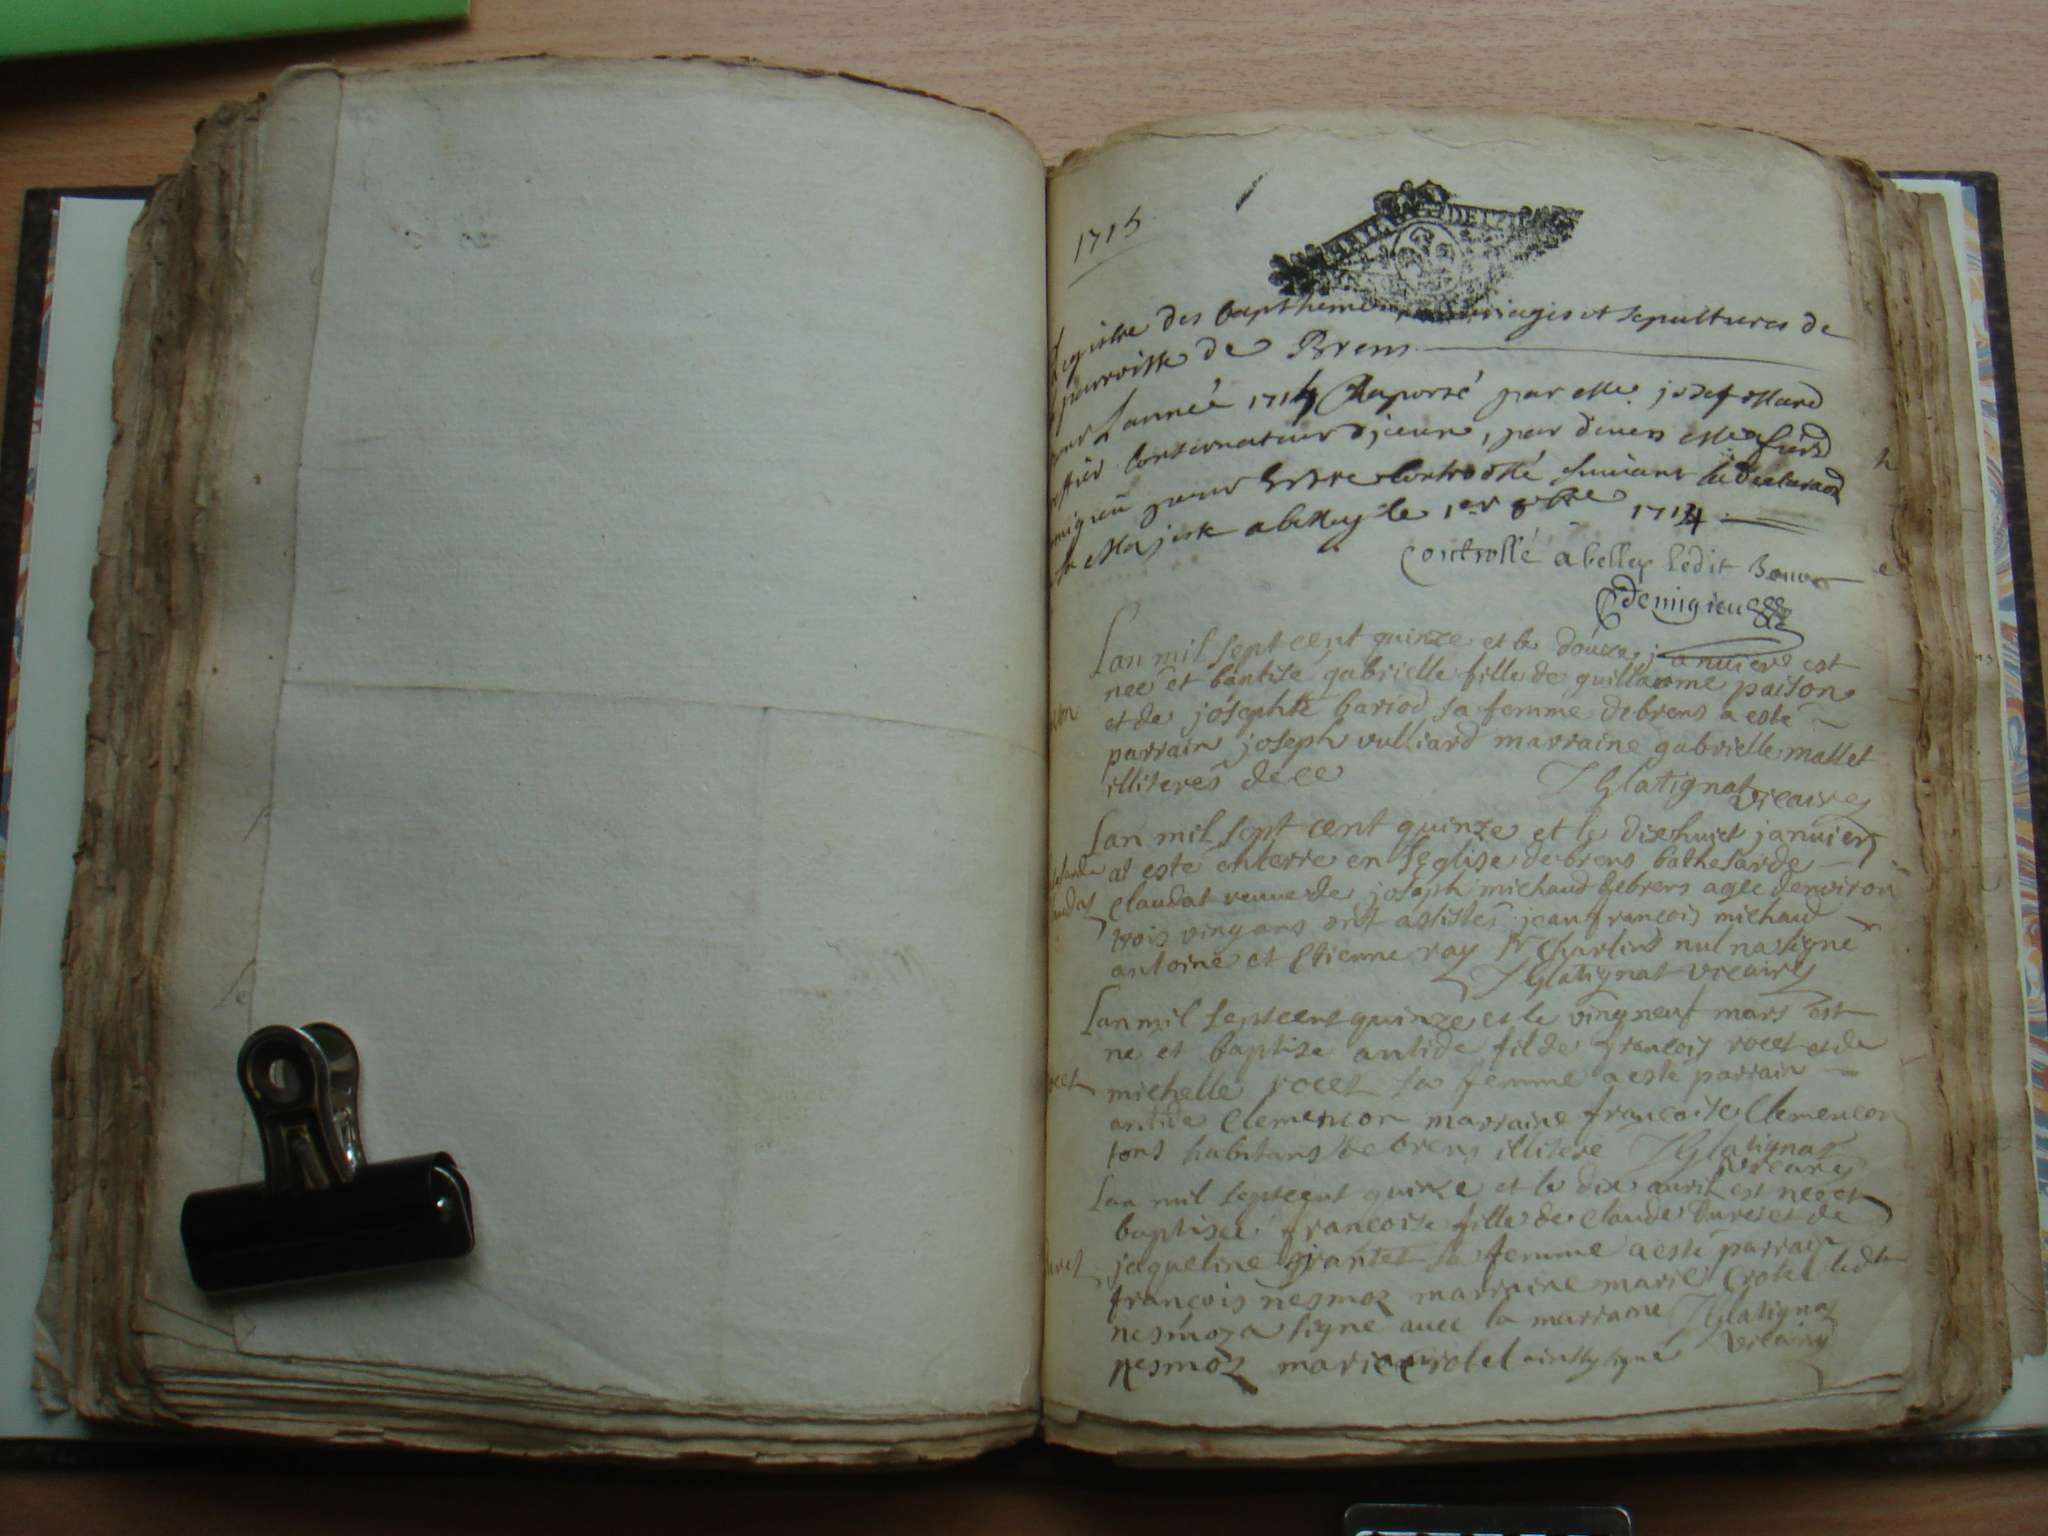 1715
Registre des bapthemes mariages et sepultures de
parroisse de Brens
pour Lannee 1714 Raporté par josef
conservateur, par
pour Estre controllé suivant la declaraon
de sa Majesté a belley le 1er 8bre 1714
Controllé a belley ledit
demigieu
Lan mil sept cent quinze et le douze januiere est
nee et bantise gabrielle fille de guillaume paison
et de josephte bariod sa femme debrens a esté
parrain joseph vulliard marraine gabrielle mallet
illiteres dece JGlatignat vicaire
Lan mil sept cent quinze et le dixhuict januier
at esté enterre en leglise debrens bathesarde
claudat veuue de joseph michaud debrens agee denviron
trois vingt ans ont asistes jean françois michaud
antoine et Etienne ray Charlins nul na signe
JGlatignat vicaire
Lan mil septcent quinze et le vingneuf mars est
ne et baptise antide fil de françois rocet et de
rocet
michelle rocet sa femme a esté parrain
antide Clemencon marraine francoise Clemencon
tous habitans de brens illitere JGlatignat
vicaire
Lan mil septcent quinze et le dix auril est nee et
baptisee francoise fille de claude buret et de
buret
jaqueline grantet sa femme a esté parrain
françois nesmoz marraine marie Crotel ledt
nesmoz a signe auec la marraine JGlatignat
nesmoz marie crotel ainsy signé vicaire